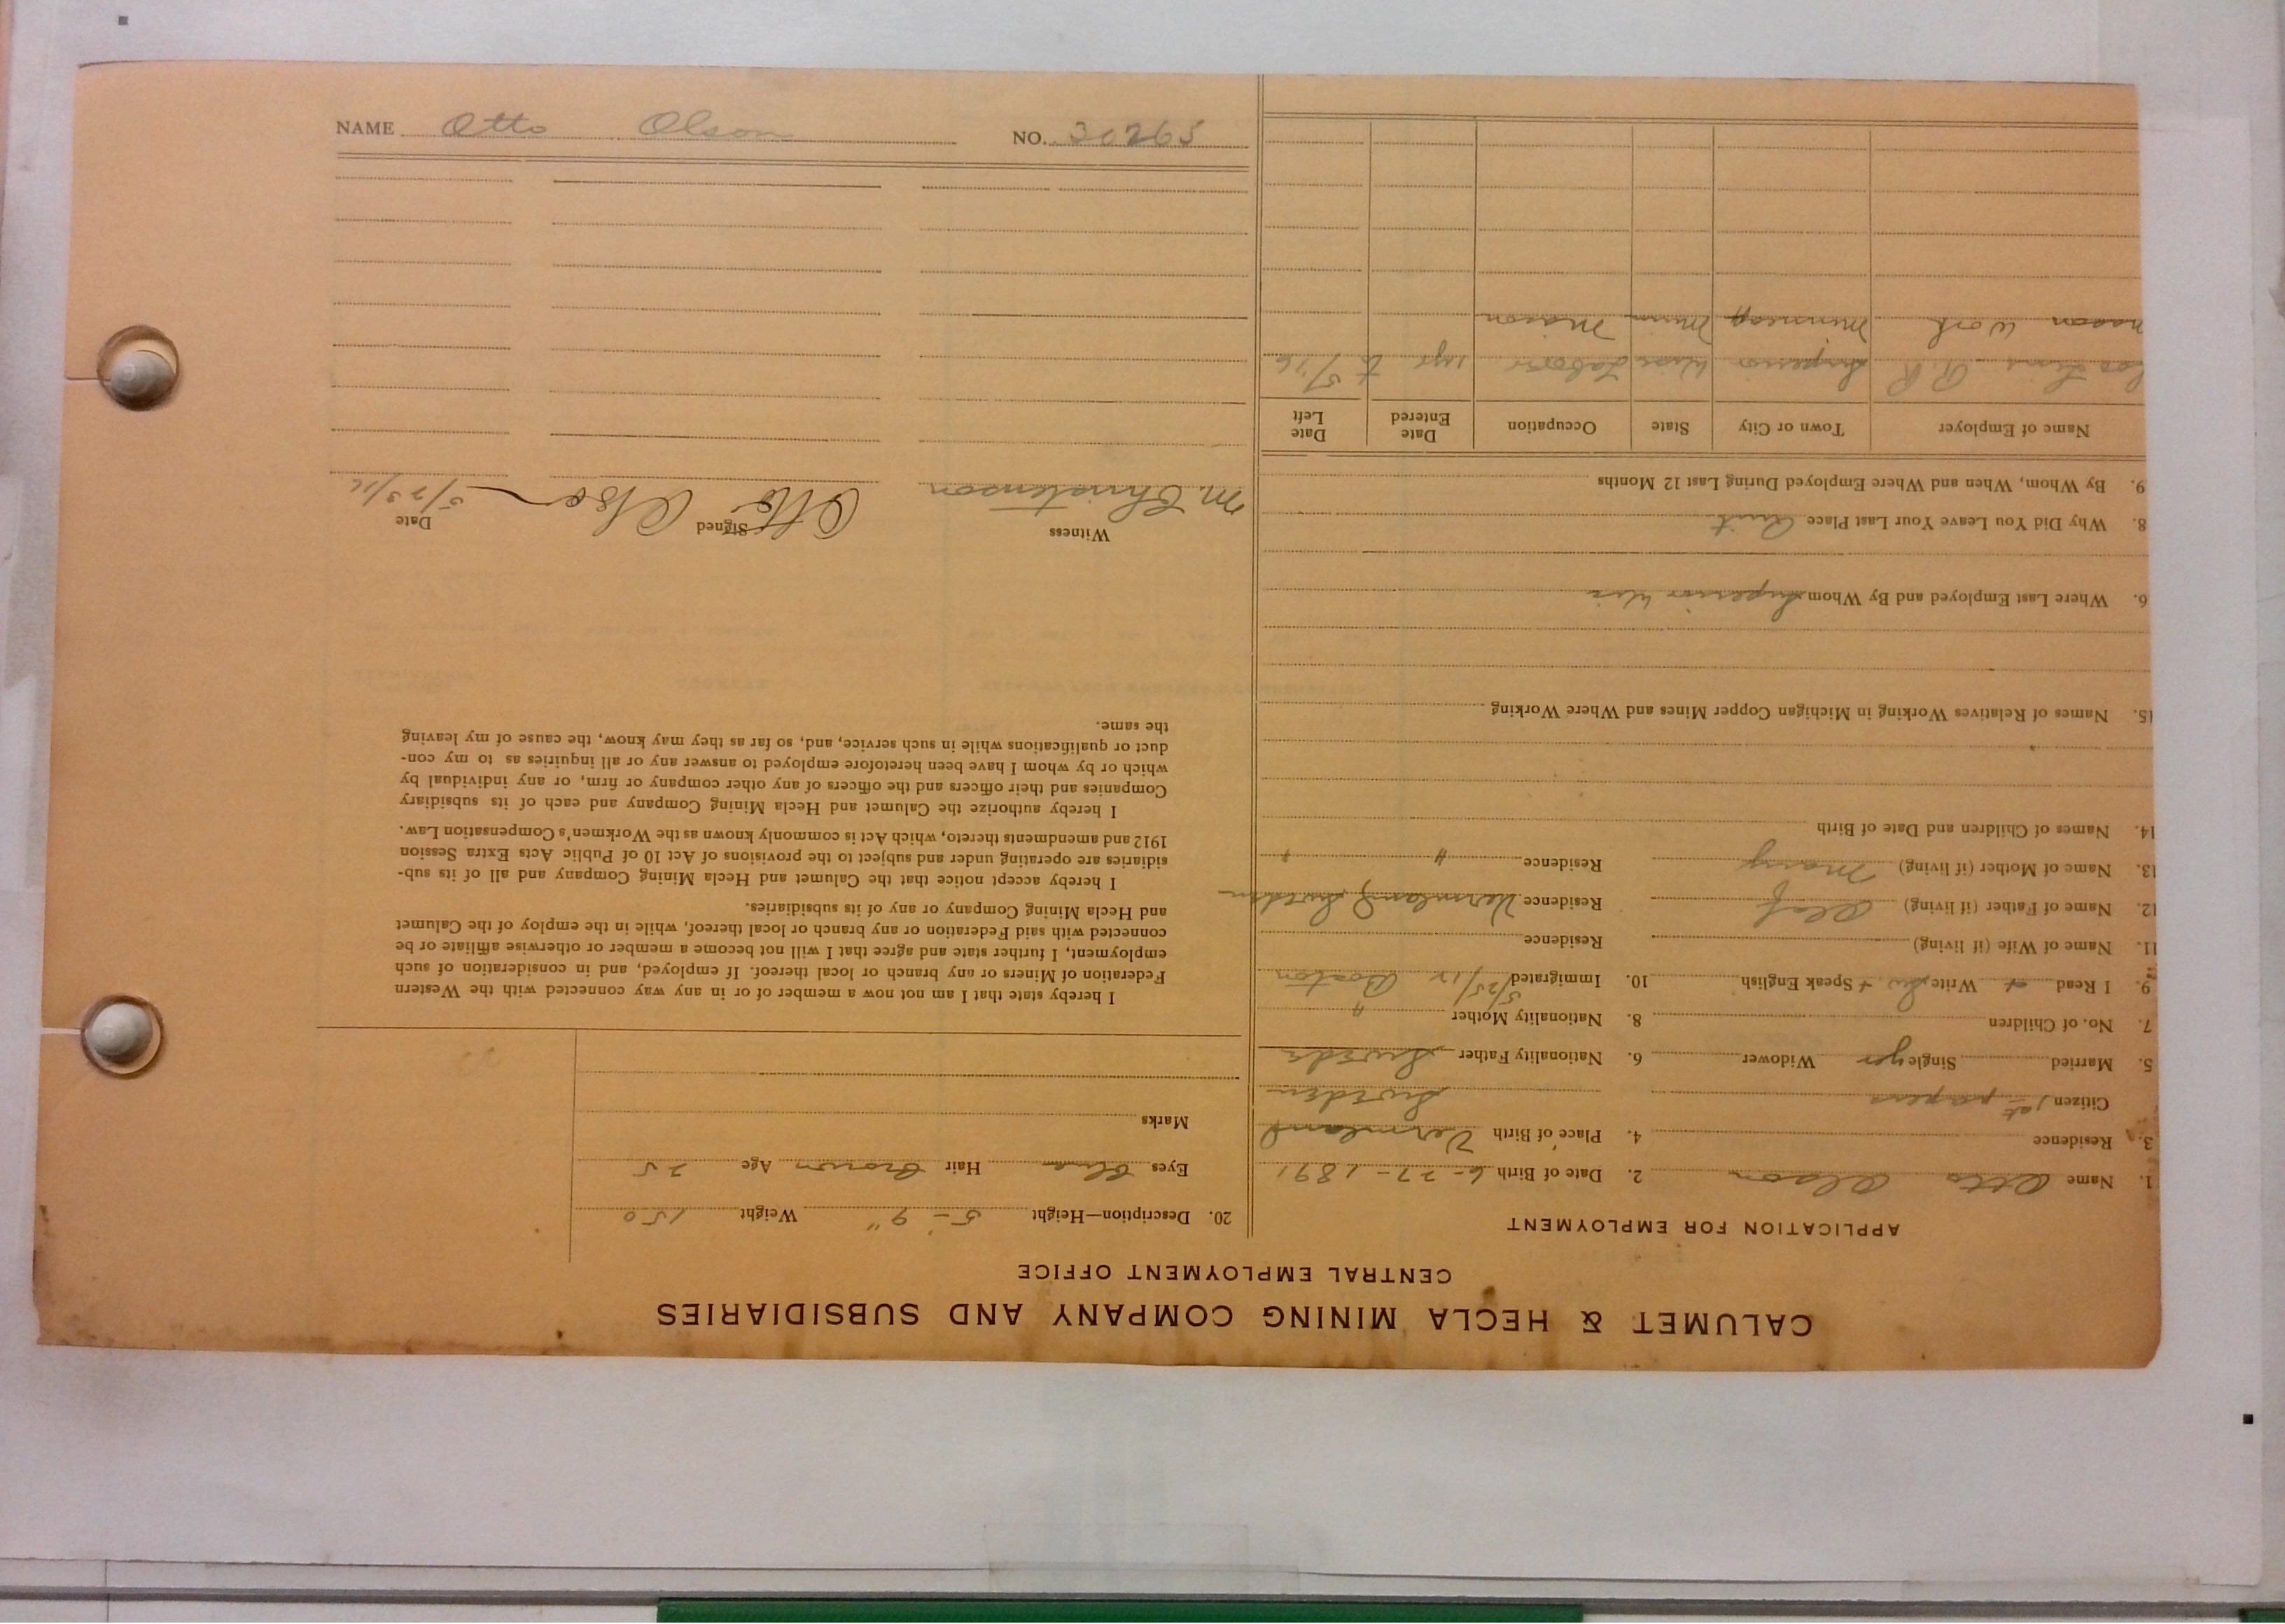 CALUMET & HECLA MINING COMPANY AND SUBSIDIARIES
CENTRAL EMPLOYMENT OFFICE
APPLICATION FOR EMPLOYMENT
1. Name Otto Olson 2. Date of Birth 6-27-1891
3. Residence 4. Place of Birth Vermland
Citizen 1st papers Sweden
5. Married Single yes Widower 6. Nationality Father Swede
7. No. of Children 8. Nationality Mother "
9. I Read + Write Sw. + Speak English 10. Immigrated 5/25/12 Boston
11. Name of Wife (if living) Residence
12. Name of Father (if living) Olaf Residence Vermland, Sweden
13. Name of Mother (if living) Mary Residence " "
14. Names of Children and Date of Birth
15. Names of Relatives Working in Michigan Copper Mines and Where Working
6. Where Last Employed and By Whom Superior Wis
8. Why Did You Leave Your Last Place Quit
9. By Whom, When and Where Employed During Last 12 Months
Name of Employer Town or City State Occupation Date Entered Date Left
R.R Superior Wis Labor to 5/16
mason work Minneap Minn Mason
20. Description—Height 5-9" Weight 150
Eyes Blue Hair Brown Age 25
Marks
I hereby state that I am not now a member of or in any way connected with the Western
Federation of Miners or any branch or local thereof. If employed, and in consideration of such
employment, I further state and agree that I will not become a member or otherwise affiliate or be
connected with said Federation or any branch or local thereof, while in the employ of the Calumet
and Hecla Mining Company or any of its subsidiaries.
I hereby accept notice that the Calumet and Hecla Mining Company and all of its sub-
sidiaries are operating under and subject to the provisions of Act 10 of Public Acts Extra Session
1912 and amendments thereto, which Act is commonly known as the Workmen's Compensation Law.
I hereby authorize the Calumet and Hecla Mining Company and each of its subsidiary
Companies and their officers and the officers of any other company or firm, or any individual by
which or by whom I have been heretofore employed to answer any or all inquiries as to my con-
duct or qualifications while in such service, and, so far as they may know, the cause of my leaving
the same.
Witness Signed Date
M. Christenson Otto Olson 5/23/16
NAME Otto Olson NO. 30265